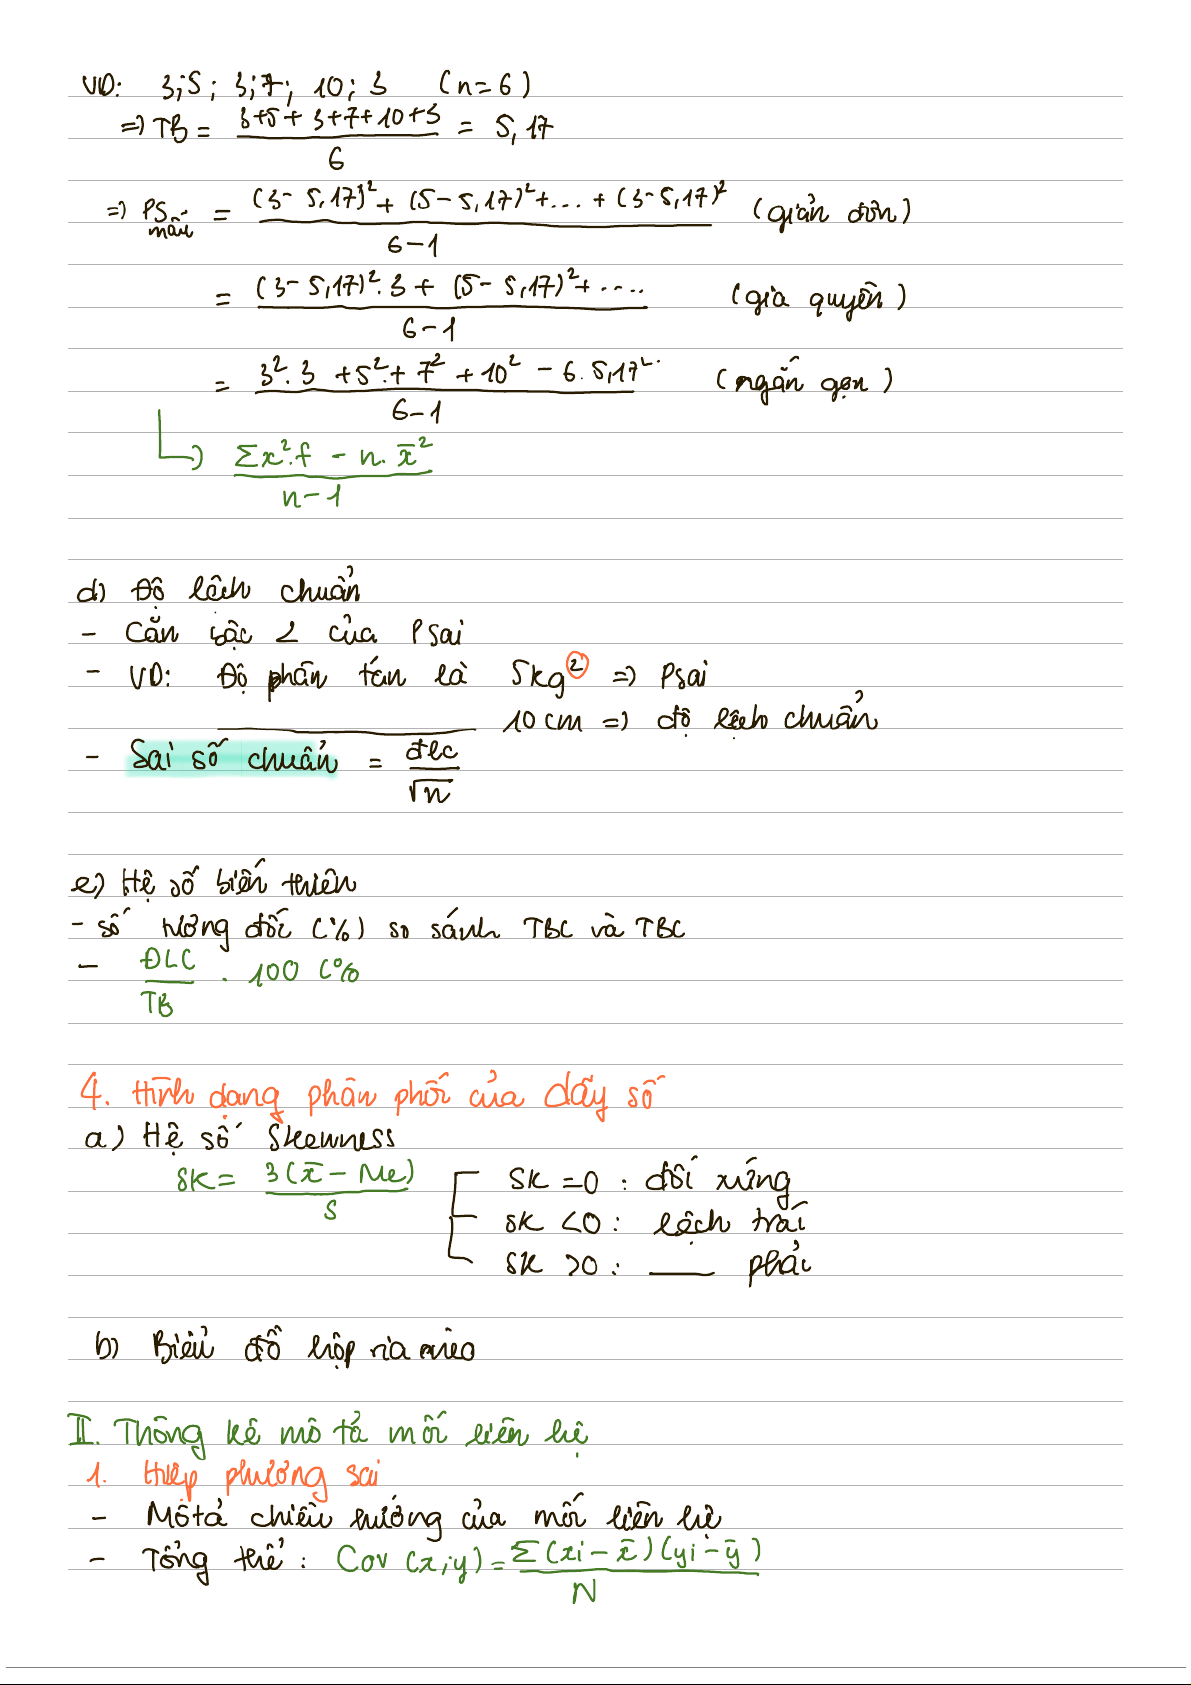 VD: 3; 5; 3; 7; 10; 3 (n=6)
=> TB = (3+5+3+7+10+3)/6 = 5,17
=> PS mẫu = ((3-5,17)² + (5-5,17)² + ... + (3-5,17)²)/(6-1) (giản đơn)
= ((3-5,17)².3 + (5-5,17)² + ....)/(6-1) (gia quyền)
= (3².3 + 5² + 7² + 10² - 6.5,17²)/(6-1) (ngắn gọn)
↳ (Σx².f - n.x̄²)/(n-1)
d) Độ lệch chuẩn
- Căn bậc 2 của PSai
- VD: Độ phân tán là 5kg² => PSai
______ 10cm => độ lệch chuẩn
- Sai số chuẩn = đlc/√n
e) Hệ số biến thiên
- số tương đối (%) so sánh TBC và TBC
- ĐLC/TB . 100 (%
4. Hình dạng phân phối của dãy số
a) Hệ số Skewness
SK = 3(x̄ - Me)/S
SK =0 : đối xứng
SK <0 : lệch trái
SK >0 : ___ phải
b) Biểu đồ hộp ria mèo
II. Thống kê mô tả mối liên hệ
1. Hiệp phương sai
- Mô tả chiều hướng của mối liên hệ
- Tổng thể : Cov (x,y) = Σ(xi - x̄)(yi - ȳ)/N